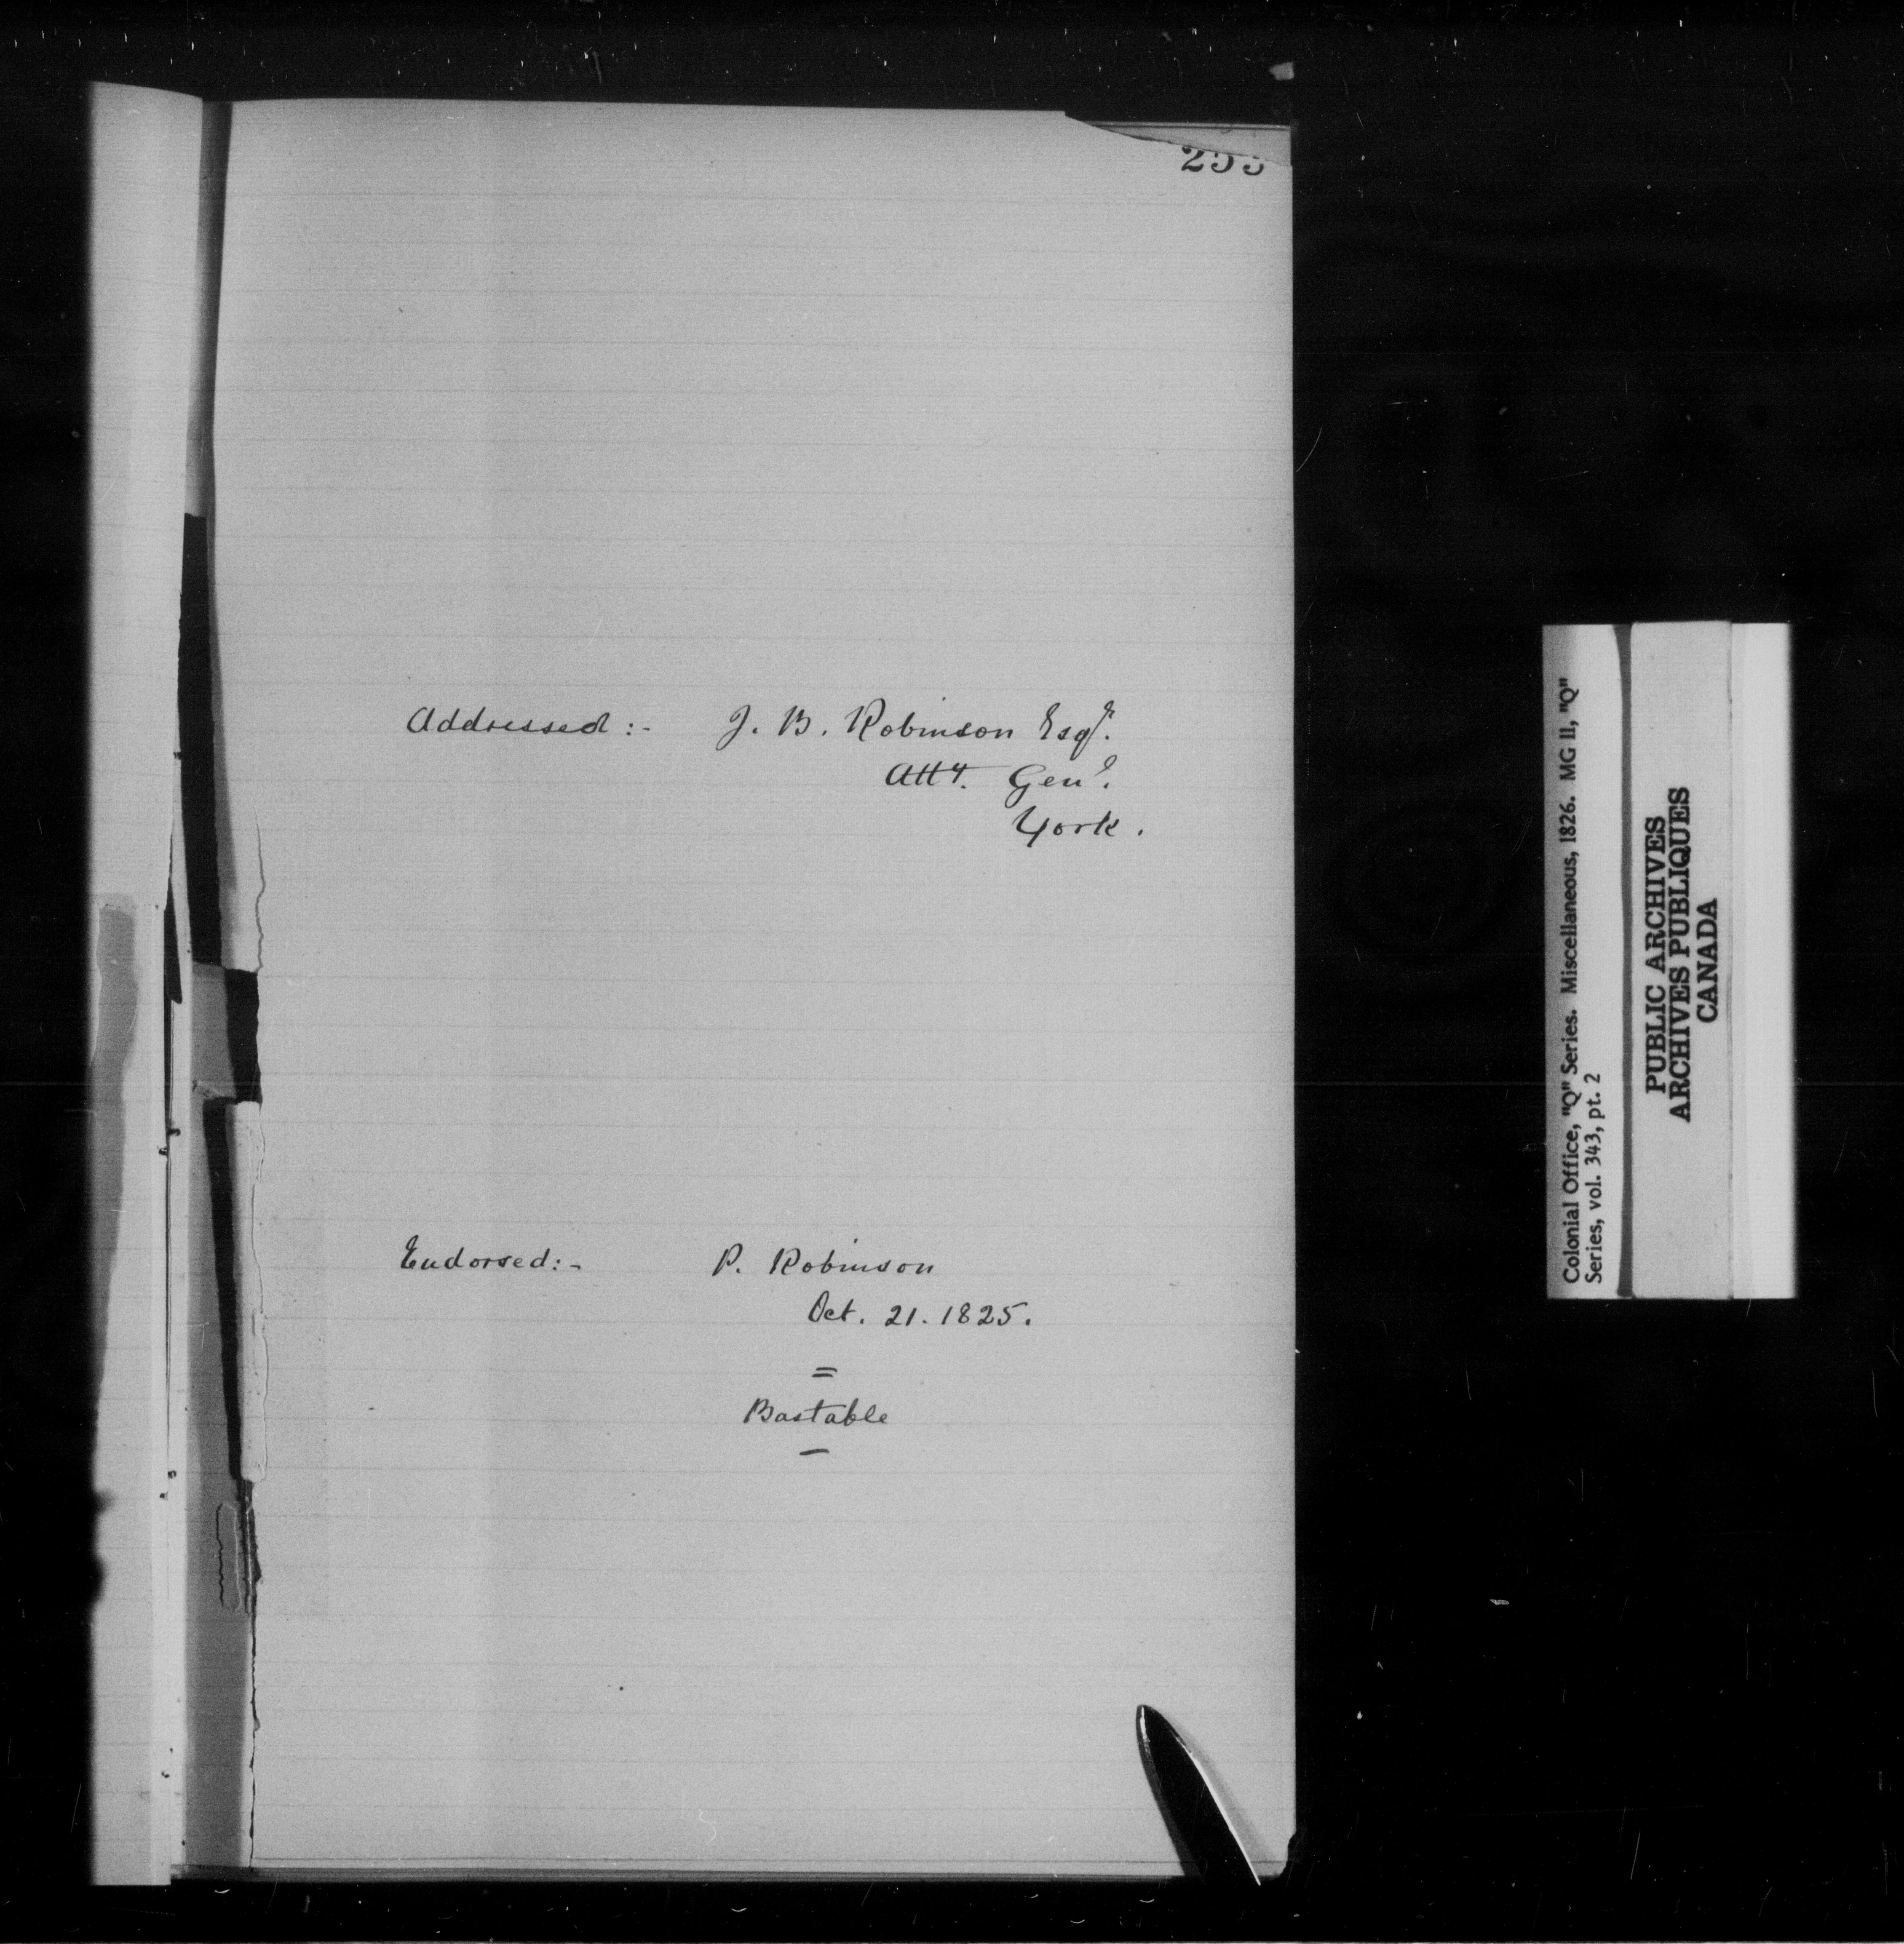 253
Addressed :- J. B. Robinson Esqr.
Atty. Genl.
York.
Endorsed :- P. Robinson
Oct. 21. 1825.
=
Bastable
—
Colonial Office, "Q" Series. Miscellaneous, 1826. MG 11, "Q"
Series, vol. 343, pt. 2
PUBLIC ARCHIVES
ARCHIVES PUBLIQUES
CANADA